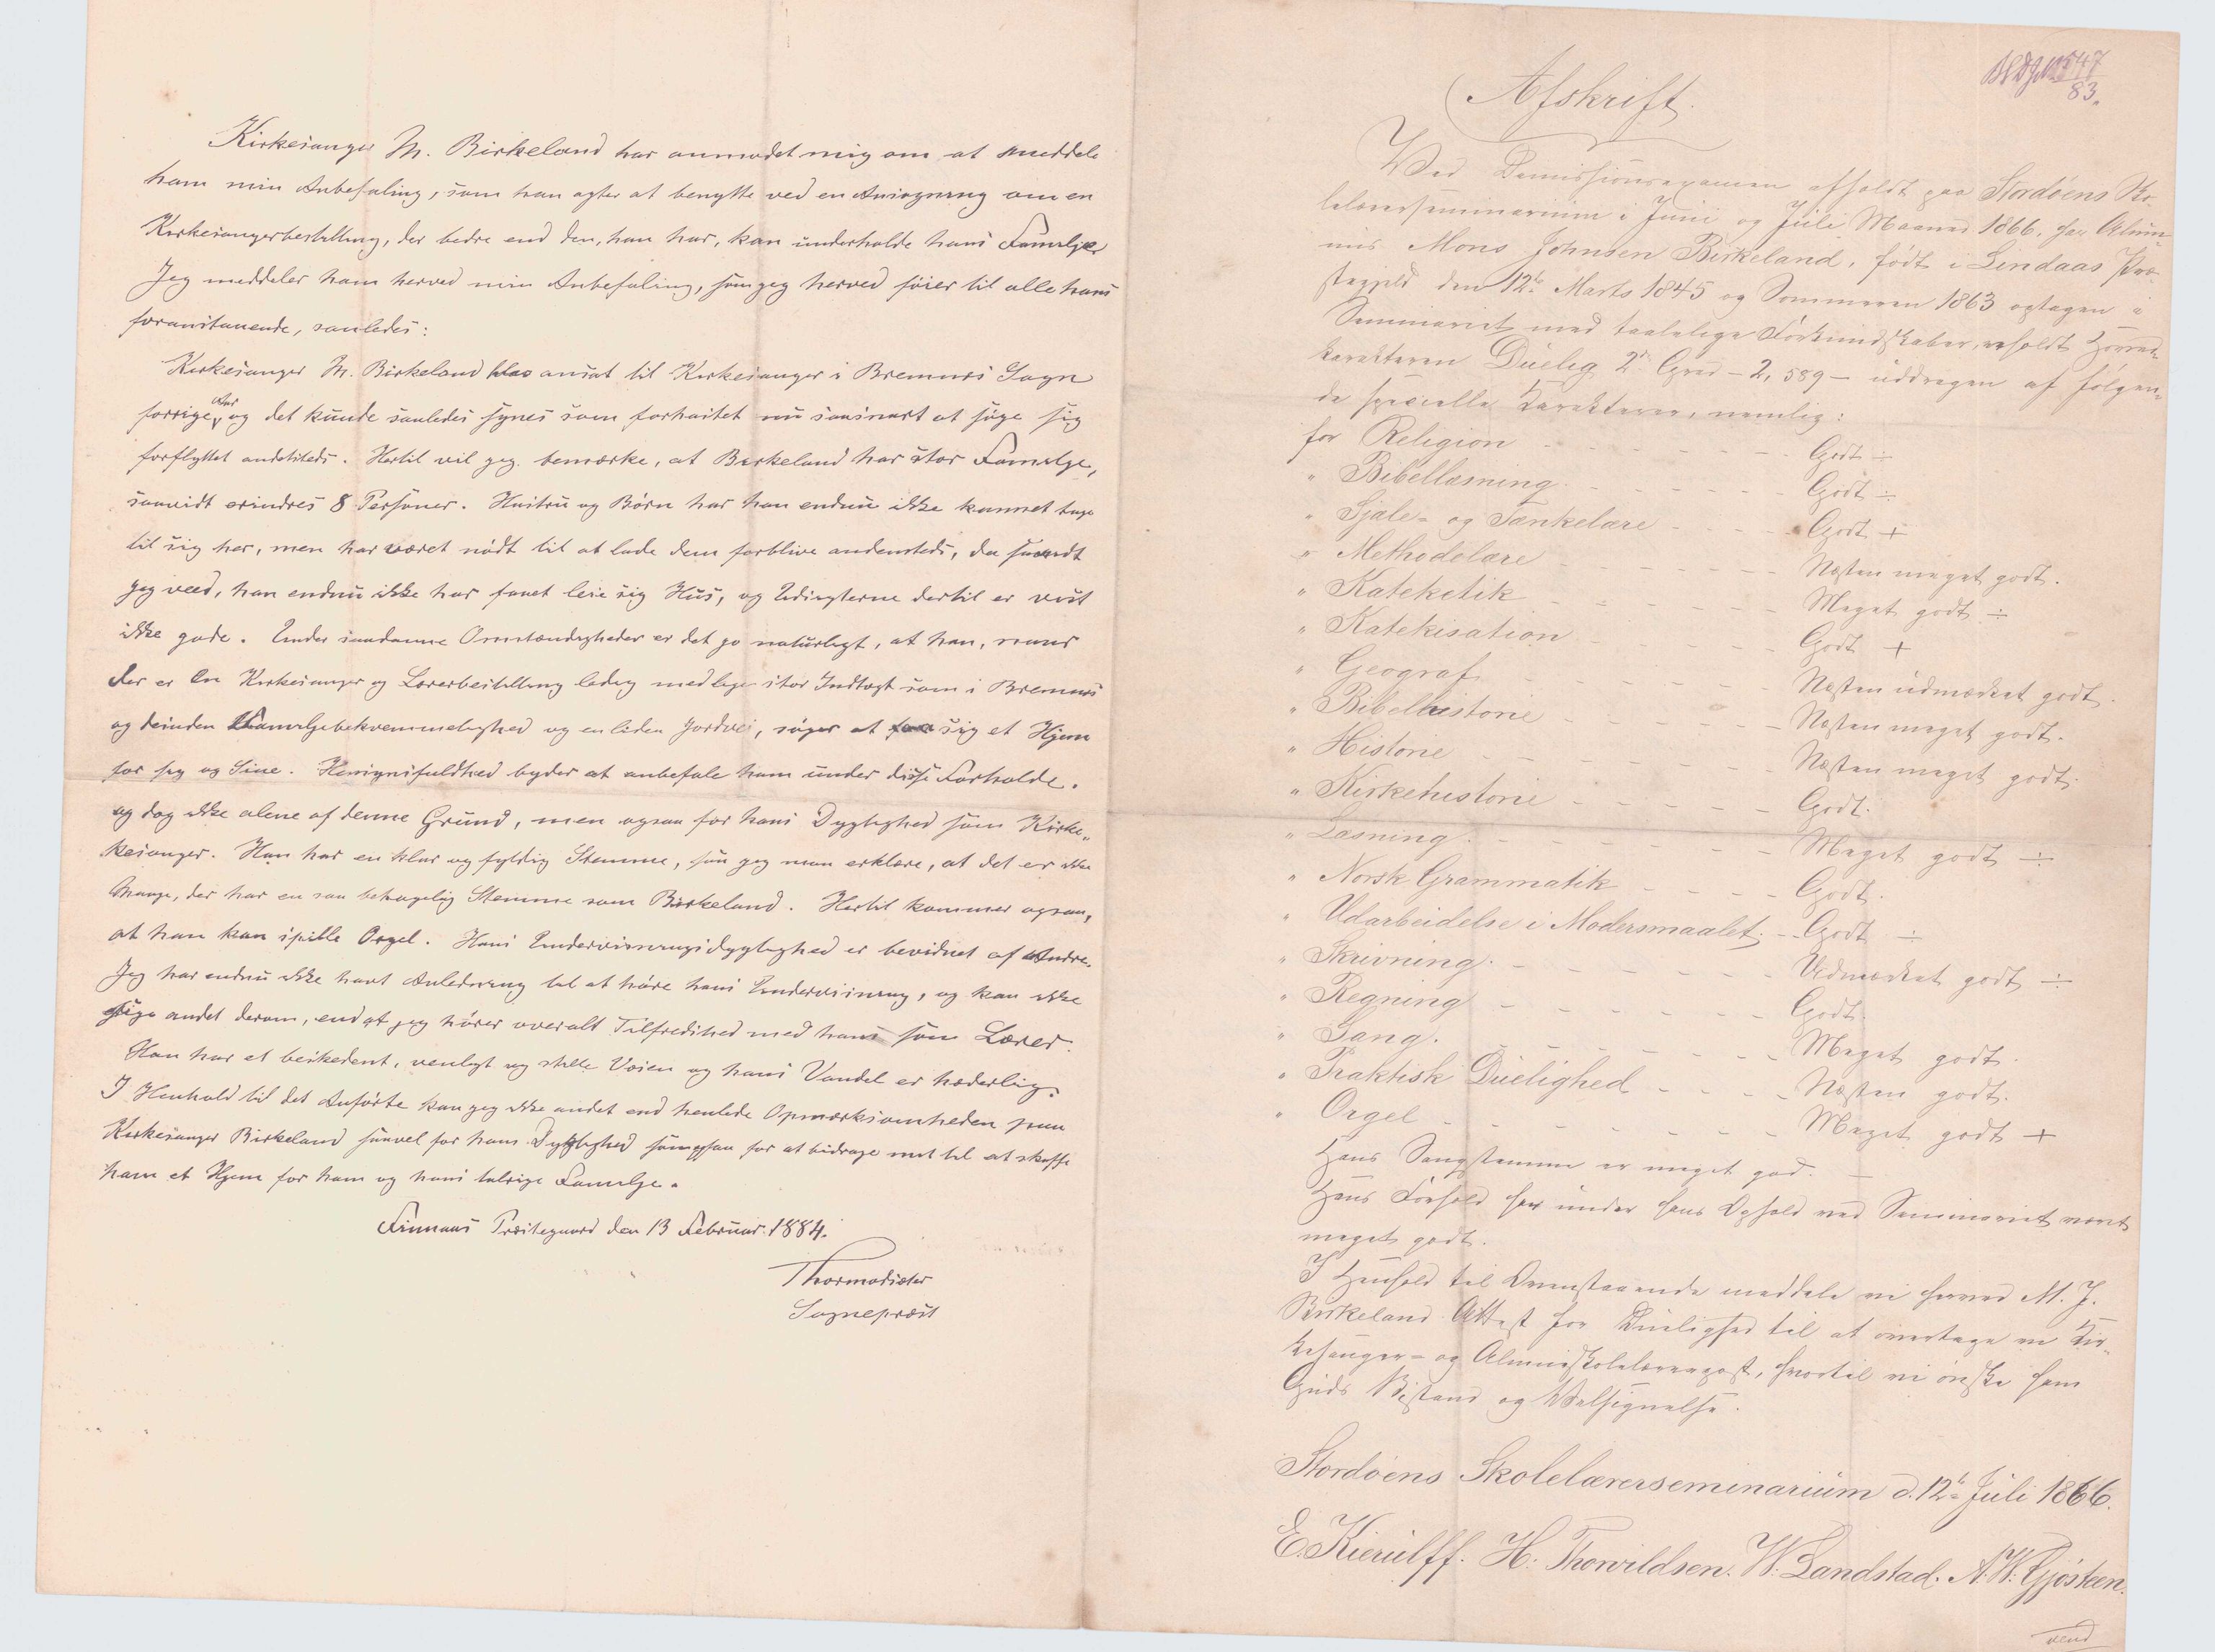 Kirkesanger M. Birkeland har anmodet mig om at meddele
ham min Anbefaling, som han agter at benytte ved en Ansøgning om en
Kirkesangerbestilling, der bedre end den, han har, kan underholde hans Familje.
Jeg meddeler ham herved min Anbefaling, som jeg herved føier til alle hans
foranstaaende, saaledes:
Kirkesanger M. Birkeland blev ansat til Kirkesanger i Bremnes Sogn
forrige Aar, og det kunde saaledes synes som forhastet nu saasnart at søge sig
forflyttet andetsteds. Hertil vil jeg bemærke, at Birkeland har stor Familje,
saavidt erindres 8 Personer. Hustru og Børn har han endnu ikke kunnet tage
til sig her, men har været nødt til at lade dem forblive andensteds, da saavidt
jeg veed, han endnu ikke har faaet leie sig Hus, og Udsigterne dertil er vist
ikke gode. Under saadanne Omstændigheder er det jo naturligt, at han, naar
der er en Kirkesanger og Lærerbestilling ledig med lige stor Indtægt som i Bremnes
og desuden Familjebekvemmelighed og en liden Jordvei, søger at faa sig et Hjem
for sig og Sine. Hensynsfuldhed byder at anbefale ham under disse Forholde.
og dog ikke alene af denne Grund, men ogsaa for hans Dygtighed som Kirke„
kesanger. Han har en klar og fyldig Stemme, saa jeg maa erklære, at det er ikke
Mange, der har en saa behagelig Stemme som Birkeland. Hertil kommer ogsaa,
at han kan spille Orgel. Hans Undervisningsdygtighed er bevidnet af Andre.
Jeg har endnu ikke havt Anledning til at høre hans Undervisning, og kan ikke
sige andet derom, end at jeg hører overalt Tilfredshed med ham som Lærer.
Han har et beskedent, venligt og stille Væsen og hans Vandel er hæderlig.
I Henhold til det Anførte kan jeg ikke andet end henlede Opmærksomheden paa
Kirkesanger Birkeland saavel for hans Dygtighed som ogsaa for at bidrage mit til at skaffe
ham et Hjem for ham og hans talrige Familje.
Finnaas Præstegaard den 13 Februar 1884.
Thormodsæter
Sognepræst
547
83.
Afskrift.
Ved Dimissionsexamen afholdt paa Stordøens Sko-
lelærerseminarium i Juni og Juli Maaned 1866, har Alum-
nus Mons Johnsen Birkeland, født i Lindaas Præ-
stegjeld den 12te Marts 1845 og Sommeren 1863 optagen i
Seminariet med taalelige Forkundskaber, erholdt Hoved-
karakteren Duelig 2den Grad - 2,589 - uddragen af følgen-
de specielle Karakterer, nemlig:
for Religion - - - Godt ÷
" Bibellæsning - - - Godt ÷
" Sjæle- og Tænkelære - - - Godt +
" Methodelære - - - Næsten meget godt.
" Kateketik - - - Meget godt ÷
" Katekisation - - - Godt +
" Geografi - - - Næsten udmærket godt.
" Bibelhistorie - - - Næsten meget godt.
" Historie - - - Næsten meget godt.
" Kirkehistorie - - - Godt.
" Læsning - - - Meget godt ÷
" Norsk Grammatik - - - Godt.
" Udarbeidelse i Modersmaalet - - Godt ÷
" Skrivning - - - Udmærket godt ÷
" Regning - - - Godt.
" Sang - - - Meget godt.
" Praktisk Duelighed - - - Næsten godt.
" Orgel - - - Meget godt +
Hans Sangstemme er meget god.
Hans Forhold har under hans Ophold ved Seminariet været
meget godt.
I Henhold til Ovenstaaende meddele vi herved M. J.
Birkeland Attest for Duelighed til at overtage en Kir-
kesanger- og Almueskolelærerpost, hvortil vi ønske ham
Guds Bistand og Velsignelse.
Stordøens Skolelærerseminarium d. 12te Juli 1866.
E. Kierulff. H. Thorvildsen. W. Landstad. A. W. Gjösteen.
vend